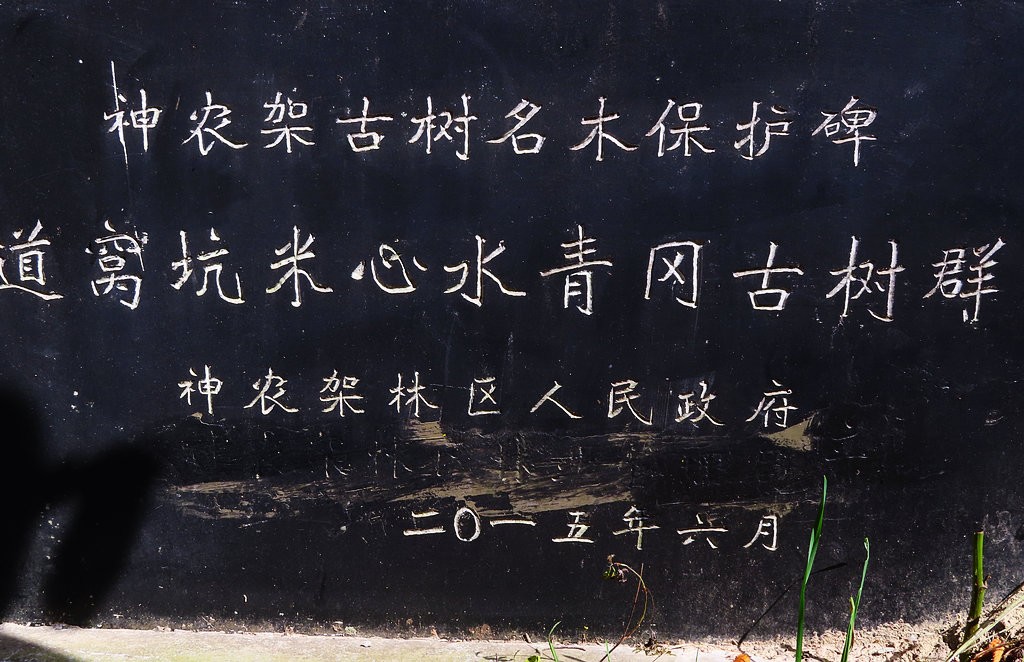 神农架古树名木保护碑
道窝坑米心水青冈古树群
神农架林区人民政府
二〇一五年六月